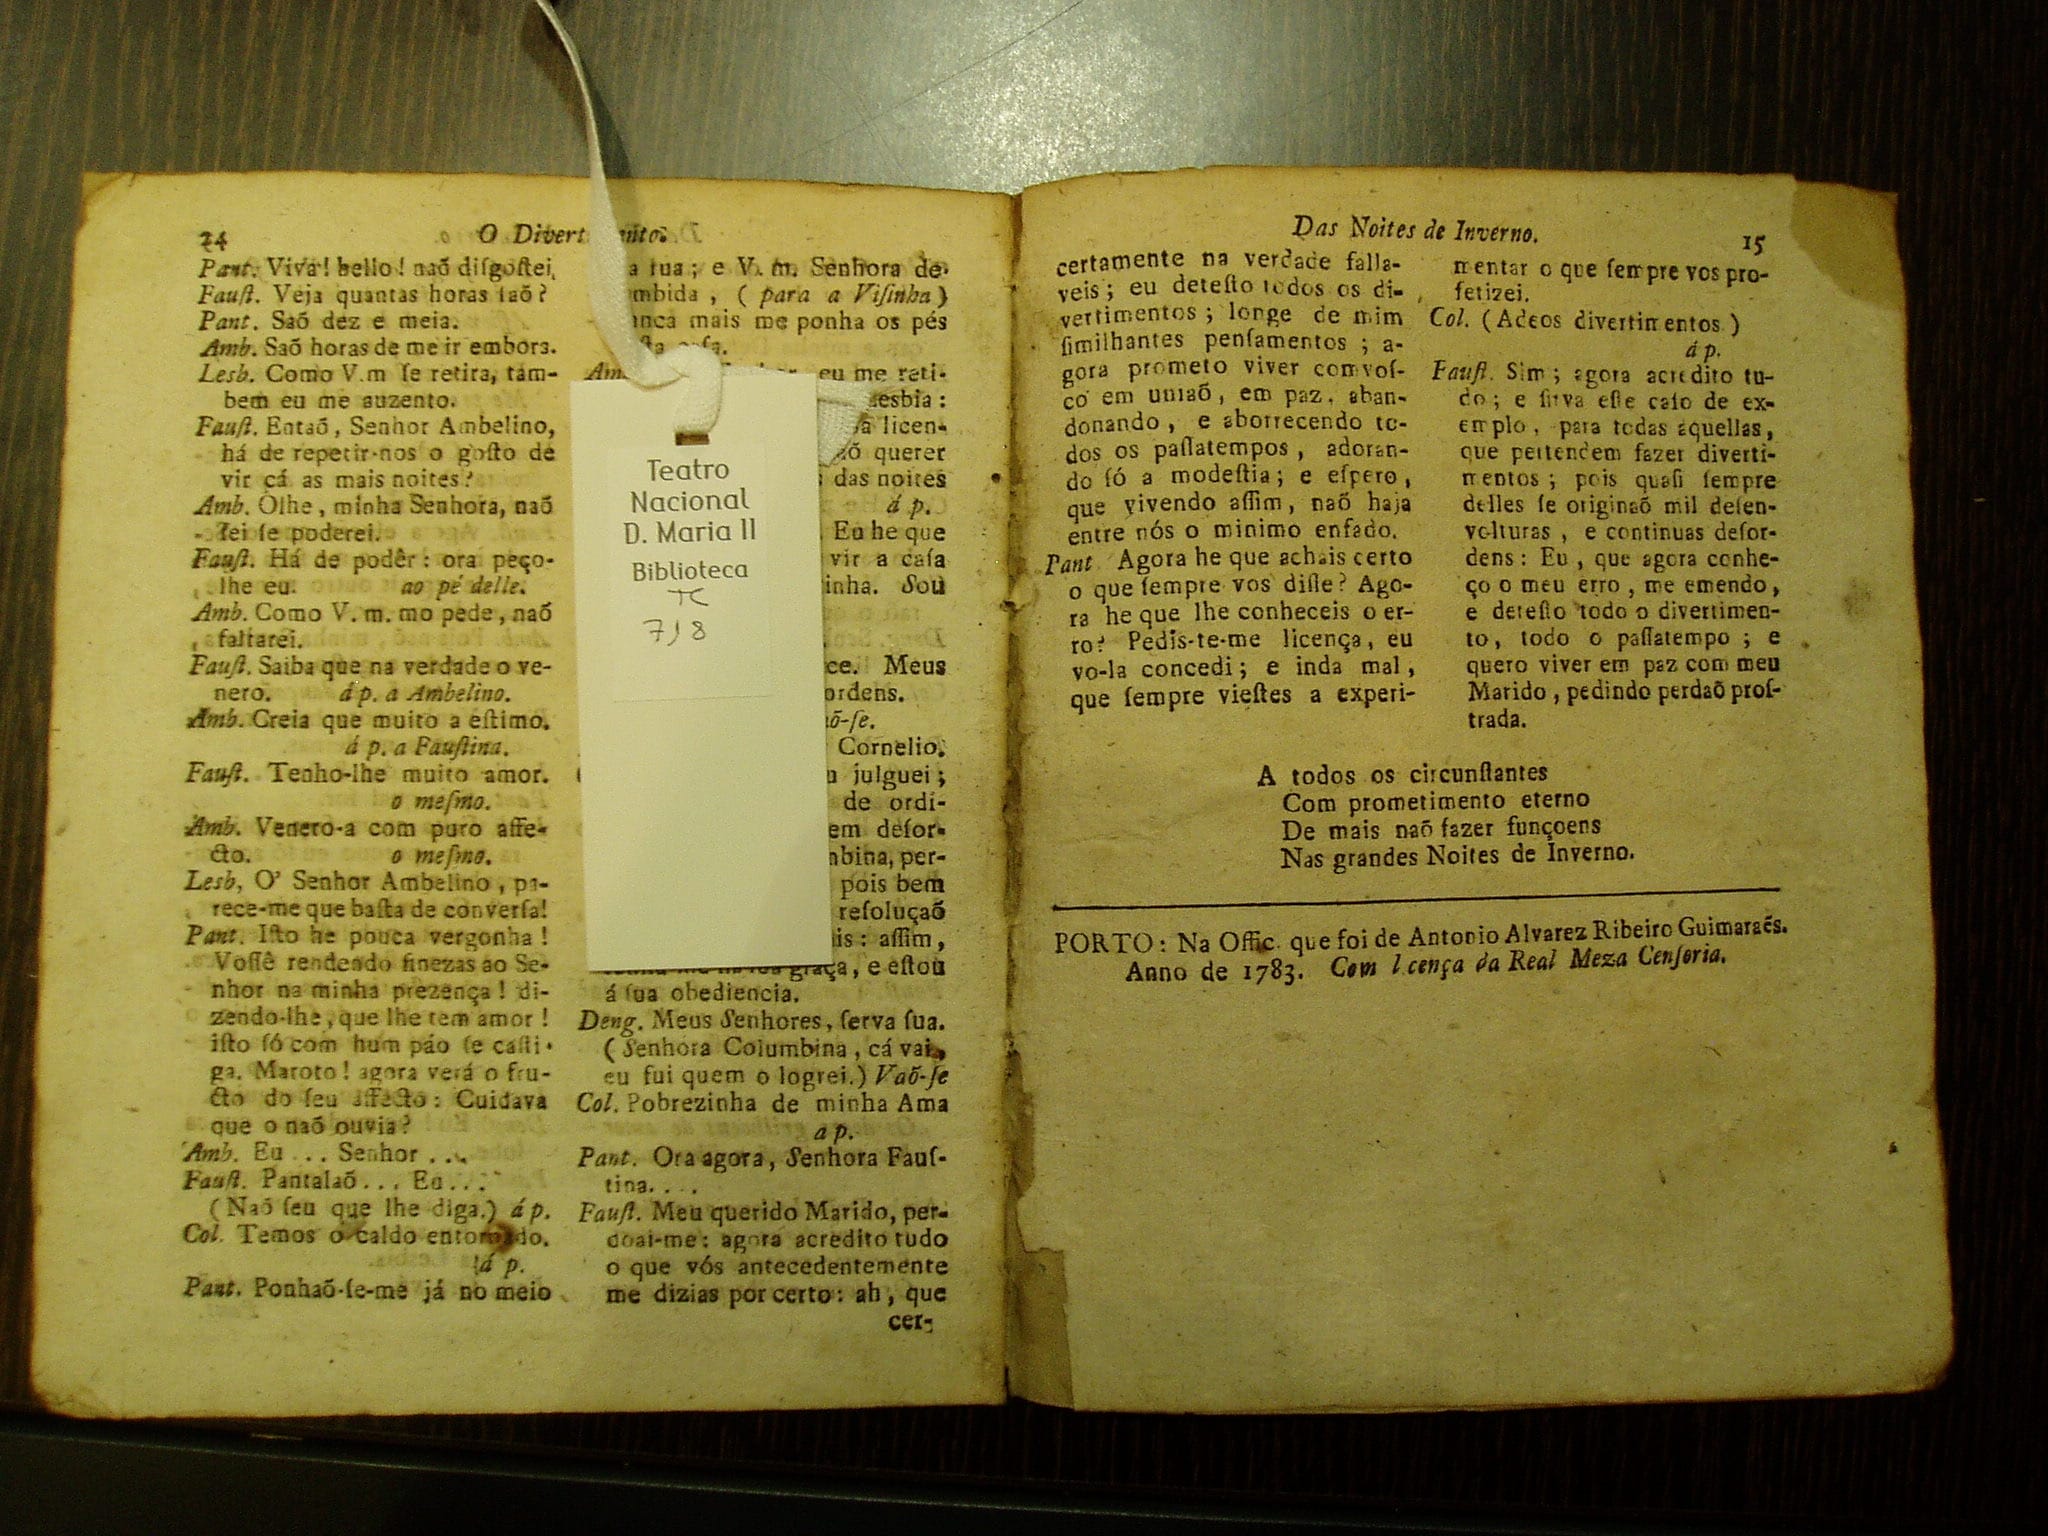 14
O Divert
Pant. Viva! bello! naõ diſgoſtei,
Fauſt. Veja quantas horas ſaõ?
Pant. Saõ dez e meia.
Amb. Saõ horas de me ir embora.
Lesb. Como V.m ſe retira, tam-
bem eu me auzento.
Fauſt. Entaõ, Senhor Ambelino,
há de repetir-nos o goſto de
vir cá as mais noites?
Amb. Olhe, minha Senhora, naõ
ſei ſe poderei.
Fauſt. Há de podêr: ora peço-
lhe eu. ao pé delle.
Amb. Como V. m. mo pede, naõ
faltarei.
Fauſt. Saiba que na verdade o ve-
nero. á p. a Ambelino.
Amb. Creia que muito a eſtimo.
á p. a Fauſtina.
Fauſt. Tenho-lhe muito amor.
o meſmo.
Amb. Venero-a com puro affe-
cto. o meſmo.
Lesb, O' Senhor Ambelino, pa-
rece-me que baſta de converſa!
Pant. Iſto he pouca vergonha!
Voſſê rendendo finezas ao Se-
nhor na minha prezença! di-
zendo-lhe, que lhe tem amor!
iſto ſó com hum páo ſe caſti-
ga. Maroto! agora verá o fru-
cto do ſeu affecto: Cuidava
que o naõ ouvia?
Amb. Eu ... Senhor ...
Fauſt. Pantalaõ... Eu...
(Naõ ſeu que lhe diga.) á p.
Col. Temos o caldo entornado.
á p.
Pant. Ponhaõ-ſe-me já no meio
a tua; e V. m. Senhora de-
mbida, (para a Viſinha)
mais me ponha os pés
eu me reti-
esbia:
licen-
querer
das noites
á p.
Eu he que
vir a caſa
inha. Sou
ce. Meus
ordens.
õ-ſe.
Cornelio.
julguei;
de ordi-
em deſor-
nbina, per-
pois bem
reſoluçaõ
is: aſſim,
graça, e eſtou
á ſua obediencia.
Deng. Meus Senhores, ſerva ſua.
(Senhora Columbina, cá vai,
eu fui quem o logrei.) Vaõ-ſe
Col. Pobrezinha de minha Ama
a p.
Pant. Ora agora, Senhora Fauſ-
tina....
Fauſt. Meu querido Marido, per-
doai-me: agora acredito tudo
o que vós antecedentemente
me dizias por certo: ah, que
cer-
Teatro
Nacional
D. Maria II
Biblioteca
TC
718
Das Noites de Inverno.
15
certamente na verdade falla-
veis; eu deteſto todos os di-
vertimentos; longe de mim
ſimilhantes penſamentos; a-
gora prometo viver comvoſ-
co em uniaõ, em paz, aban-
donando, e aborrecendo to-
dos os paſſatempos, adoran-
do ſó a modeſtia; e eſpero,
que vivendo aſſim, naõ haja
entre nós o minimo enfado.
Pant Agora he que achais certo
o que ſempre vos diſſe? Ago-
ra he que lhe conheceis o er-
ro? Pedis-te-me licença, eu
vo-la concedi; e inda mal,
que ſempre vieſtes a experi-
mentar o que ſempre vos pro-
fetizei.
Col. (Adeos divertimentos)
á p.
Fauſt. Sim; agora acredito tu-
do; e ſirva eſte caſo de ex-
emplo, para todas aquellas,
que pertendem fazer diverti-
mentos; pois quaſi ſempre
delles ſe originaõ mil deſen-
volturas, e continuas deſor-
dens: Eu, que agora conhe-
ço o meu erro, me emendo,
e deteſto todo o divertimen-
to, todo o paſſatempo; e
quero viver em paz com meu
Marido, pedindo perdaõ proſ-
trada.
A todos os circunſtantes
Com prometimento eterno
De mais naõ fazer funçoens
Nas grandes Noites de Inverno.
PORTO: Na Offic. que foi de Antonio Alvarez Ribeiro Guimaraẽs.
Anno de 1783. Com licença da Real Meza Cenſoria.